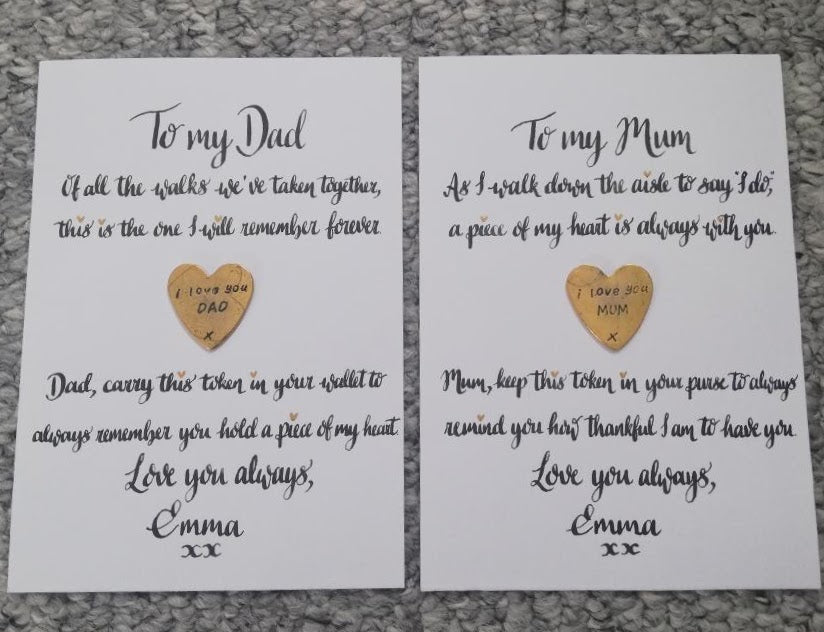 To my Dad
Of all the walks we've taken together,
this is the one I will remember forever.
i love you
DAD
x
Dad, carry this token in your wallet to
always remember you hold a piece of my heart.
Love you always,
Emma
xx
To my Mum
As I walk down the aisle to say "I do",
a piece of my heart is always with you.
i love you
MUM
x
Mum, keep this token in your purse to always
remind you how thankful I am to have you.
Love you always,
Emma
xx